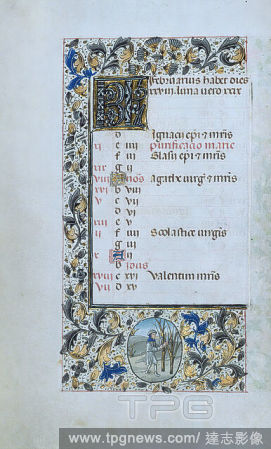 KL
Februarius habet dies
xxviii. luna vero xxix
d Ignacii epi & mris
xi e iiii purificacio marie
f iii Blasii epi & mris
xix g ii
viii nos Agathe virg & mris
b viii
v c vii
d vi
e v
ii f iiii Scolastice virginis
g iii
x A ii
b idus
xviii c xvi Valentini mris
vii d xv
TPG
www.tpgnews.com/ 達志影像